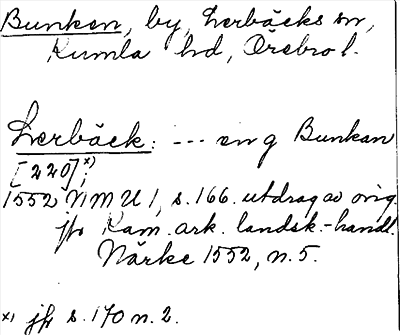 Bunken, by, Lerbäcks sn,
Kumla hd, Örebro l.
Lerbäck: --- en g Bunkan
[220]x);
1552 NMU 1, s. 166. utdrag av orig.
jfr Kam. ark. landsk.-handl.
Närke 1552, n. 5.
x) jfr s. 170 n. 2.